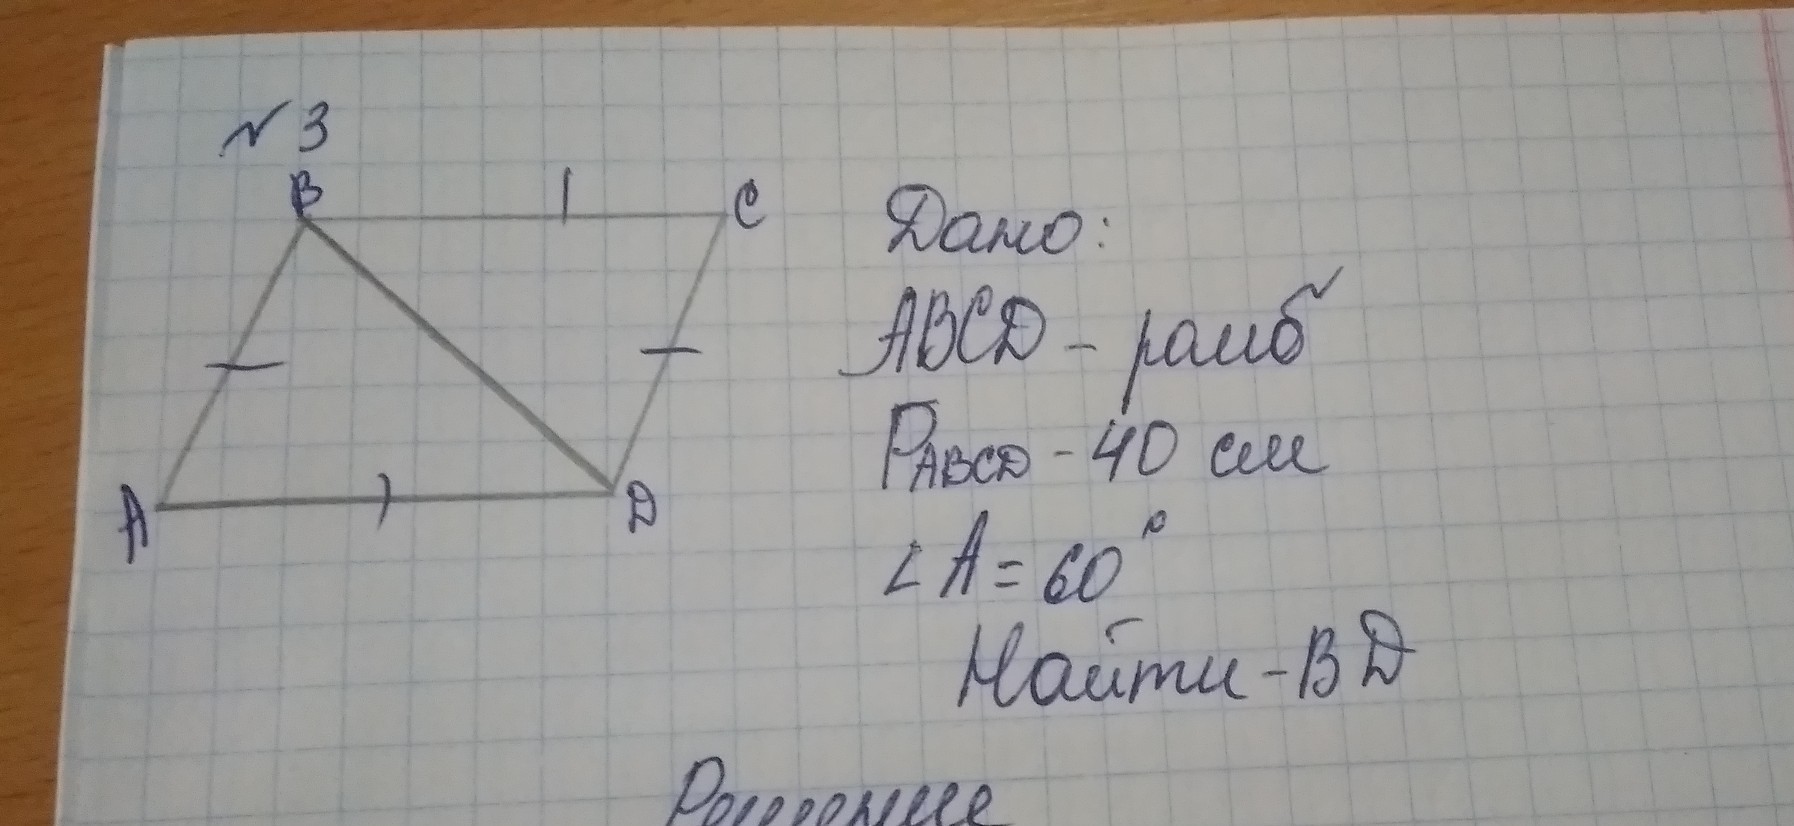 № 3
B
C
A
D
Дано:
ABCD - ромб
PABCD - 40 см
∠ A = 60°
Найти - BD
Решение